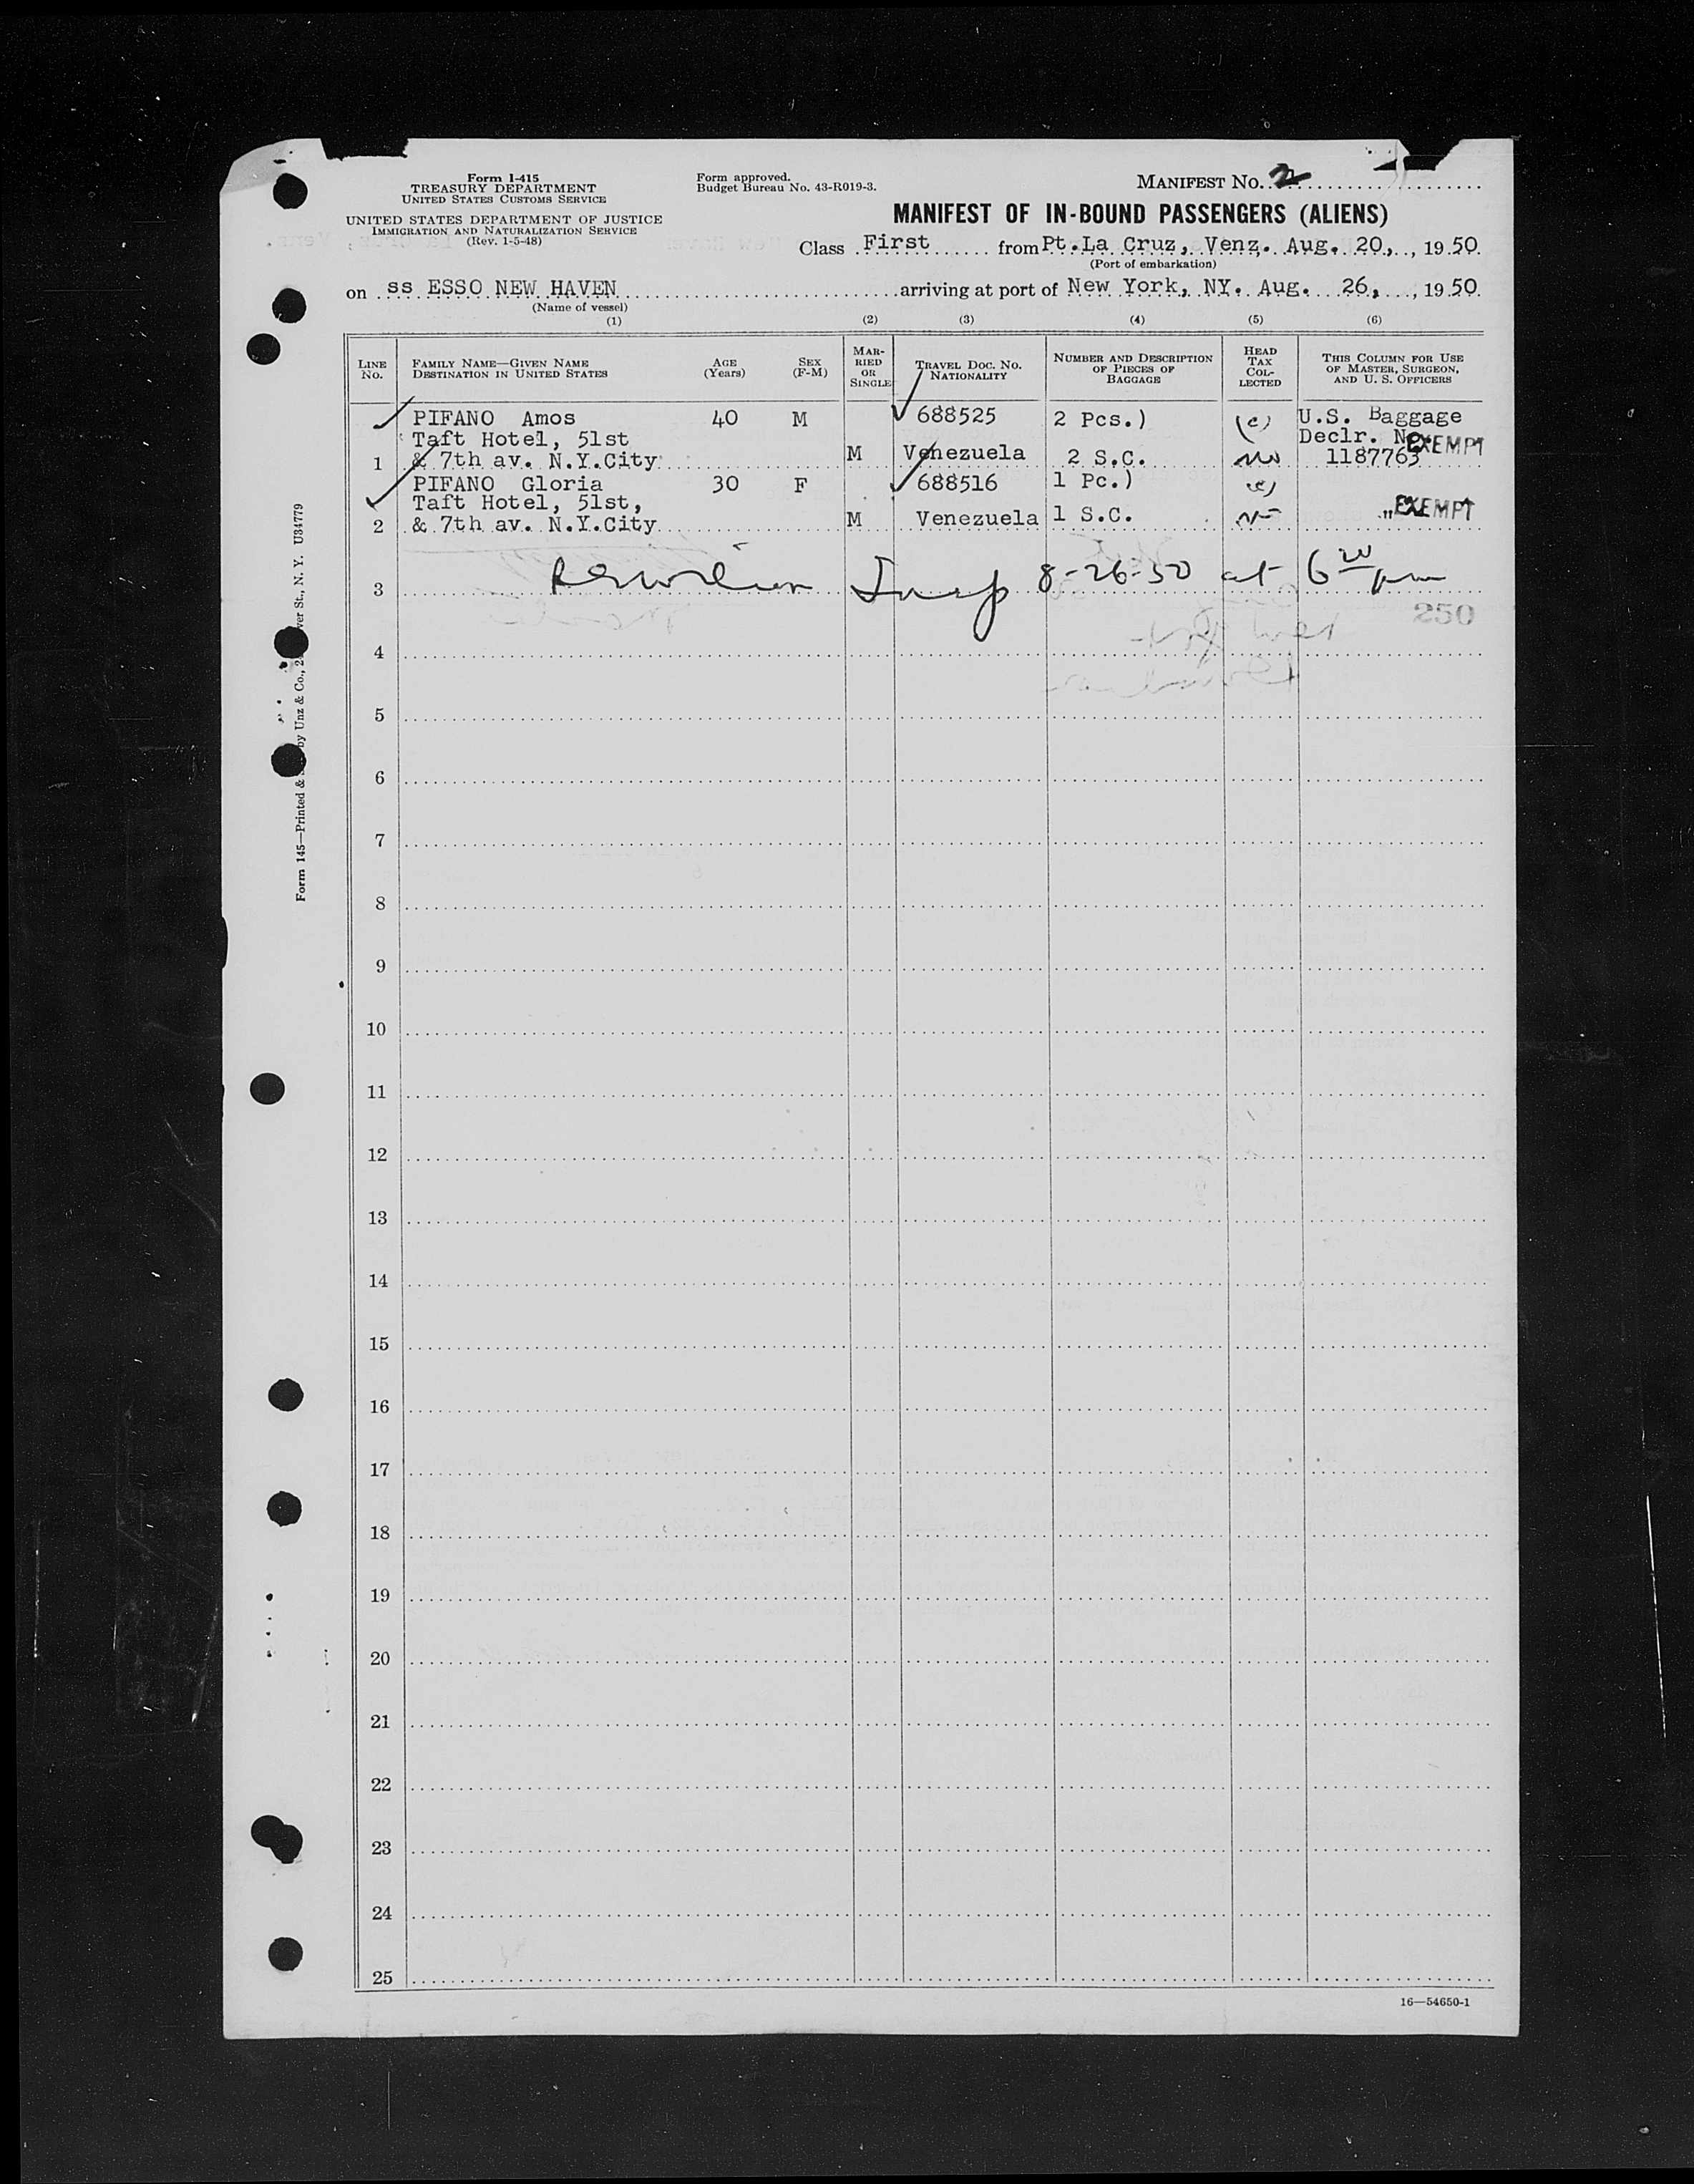 Form I-415
TREASURY DEPARTMENT
UNITED STATES CUSTOMS SERVICE
UNITED STATES DEPARTMENT OF JUSTICE
IMMIGRATION AND NATURALIZATION SERVICE
(Rev. 1-5-48)
Form approved.
Budget Bureau No. 43-R019-3.
MANIFEST No. 2
MANIFEST OF IN-BOUND PASSENGERS (ALIENS)
Class First from Pt.La Cruz, Venz. Aug. 20, , 19 50
(Port of embarkation)
on ss ESSO NEW HAVEN arriving at port of New York, NY. Aug. 26, , 19 50
(Name of vessel)
(1) (2) (3) (4) (5) (6)
LINE No. FAMILY NAME—GIVEN NAME DESTINATION IN UNITED STATES AGE (Years) SEX (F-M) MARRIED OR SINGLE TRAVEL DOC. NO. NATIONALITY NUMBER AND DESCRIPTION OF PIECES OF BAGGAGE HEAD TAX COLLECTED THIS COLUMN FOR USE OF MASTER, SURGEON, AND U. S. OFFICERS
PIFANO Amos 40 M 688525 2 Pcs.) (e) U.S. Baggage
Taft Hotel, 51st Declr. No. EXEMPT
1 & 7th av. N.Y.City M Venezuela 2 S.C. 1187763
PIFANO Gloria 30 F 688516 1 Pc.) (e)
Taft Hotel, 51st,
2 & 7th av. N.Y.City M Venezuela 1 S.C. " EXEMPT
3 Insp 8-26-50 at 6 pm
250
4
5
6
7
8
9
10
11
12
13
14
15
16
17
18
19
20
21
22
23
24
25
16—54650-1
Form 145—Printed & by Unz & Co., St., N. Y. U34779